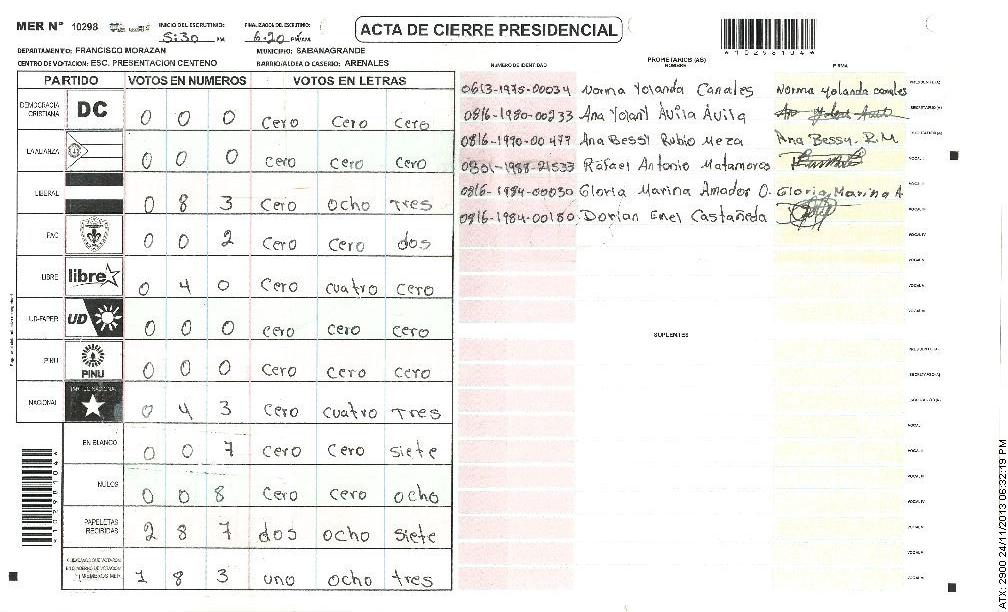 MER N° 10298 INICIO DEL ESCRUTINIO: 5:30 PM FINALIZACION DEL ESCRUTINIO: 6:20 PM
ACTA DE CIERRE PRESIDENCIAL
DEPARTAMENTO: FRANCISCO MORAZAN MUNICIPIO: SABANAGRANDE
CENTRO DE VOTACION: ESC. PRESENTACION CENTENO BARRIO/ALDEA O CASERIO: ARENALES
PARTIDO VOTOS EN NUMEROS VOTOS EN LETRAS
DEMOCRACIA CRISTIANA DC 0 0 0 cero cero cero
LA ALIANZA 0 0 0 cero cero cero
LIBERAL 0 8 3 cero ocho tres
PAC 0 0 2 cero cero dos
LIBRE libre 0 4 0 cero cuatro cero
UD-FAPER UD 0 0 0 cero cero cero
PINU PINU 0 0 0 cero cero cero
NACIONAL PARTIDO NACIONAL 0 4 3 cero cuatro tres
EN BLANCO 0 0 7 cero cero siete
NULOS 0 0 8 cero cero ocho
PAPELETAS RECIBIDAS 2 8 7 dos ocho siete
1 8 3 uno ocho tres
*10298104*
PROPIETARIOS (AS)
NUMERO DE IDENTIDAD NOMBRE FIRMA
0613-1975-00034 Norma Yolanda Canales Norma Yolanda canales PRESIDENTE (A)
0816-1980-00233 Ana Yolani Ávila Ávila SECRETARIO (A)
0816-1990-00477 Ana Bessi Rubio Meza Ana Bessy. R.M
0801-1988-21533 Rafael Antonio Matamoros VOCAL I
0816-1984-00030 Gloria Marina Amador O. Gloria Marina A
0816-1984-00180 Dorian Enel Castañeda
SUPLENTES
ATX: 2900 24/11/2013 06:32:19 PM